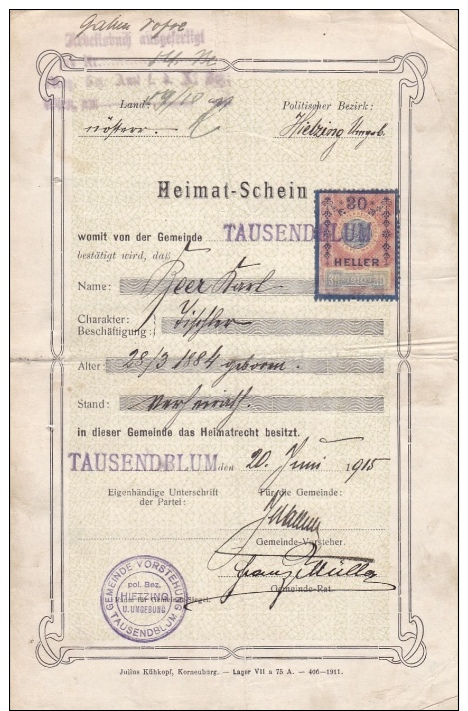 Arbeitsbuch ausgefertigt
Land:
Politischer Bezirk:
Hietzing Umgeb.
Heimat-Schein
30
HELLER
womit von der Gemeinde TAUSENDBLUM
bestätigt wird, daß
Name: Beer Karl
Charakter:
Beschäftigung: Tischler
Alter: 28/3 1884 geboren.
Stand: verheirath.
in dieser Gemeinde das Heimatrecht besitzt.
TAUSENDBLUM den 20. Juni 1915
Eigenhändige Unterschrift
der Partei:
Für die Gemeinde:
Gemeinde-Vorsteher.
Franz Müller
Gemeinde-Rat.
GEMEINDE VORSTEHUNG
pol. Bez.
HIETZING
U. UMGEBUNG
TAUSENDBLUM
Julius Kühkopf, Korneuburg. — Lager VII a 75 A. — 406—1911.